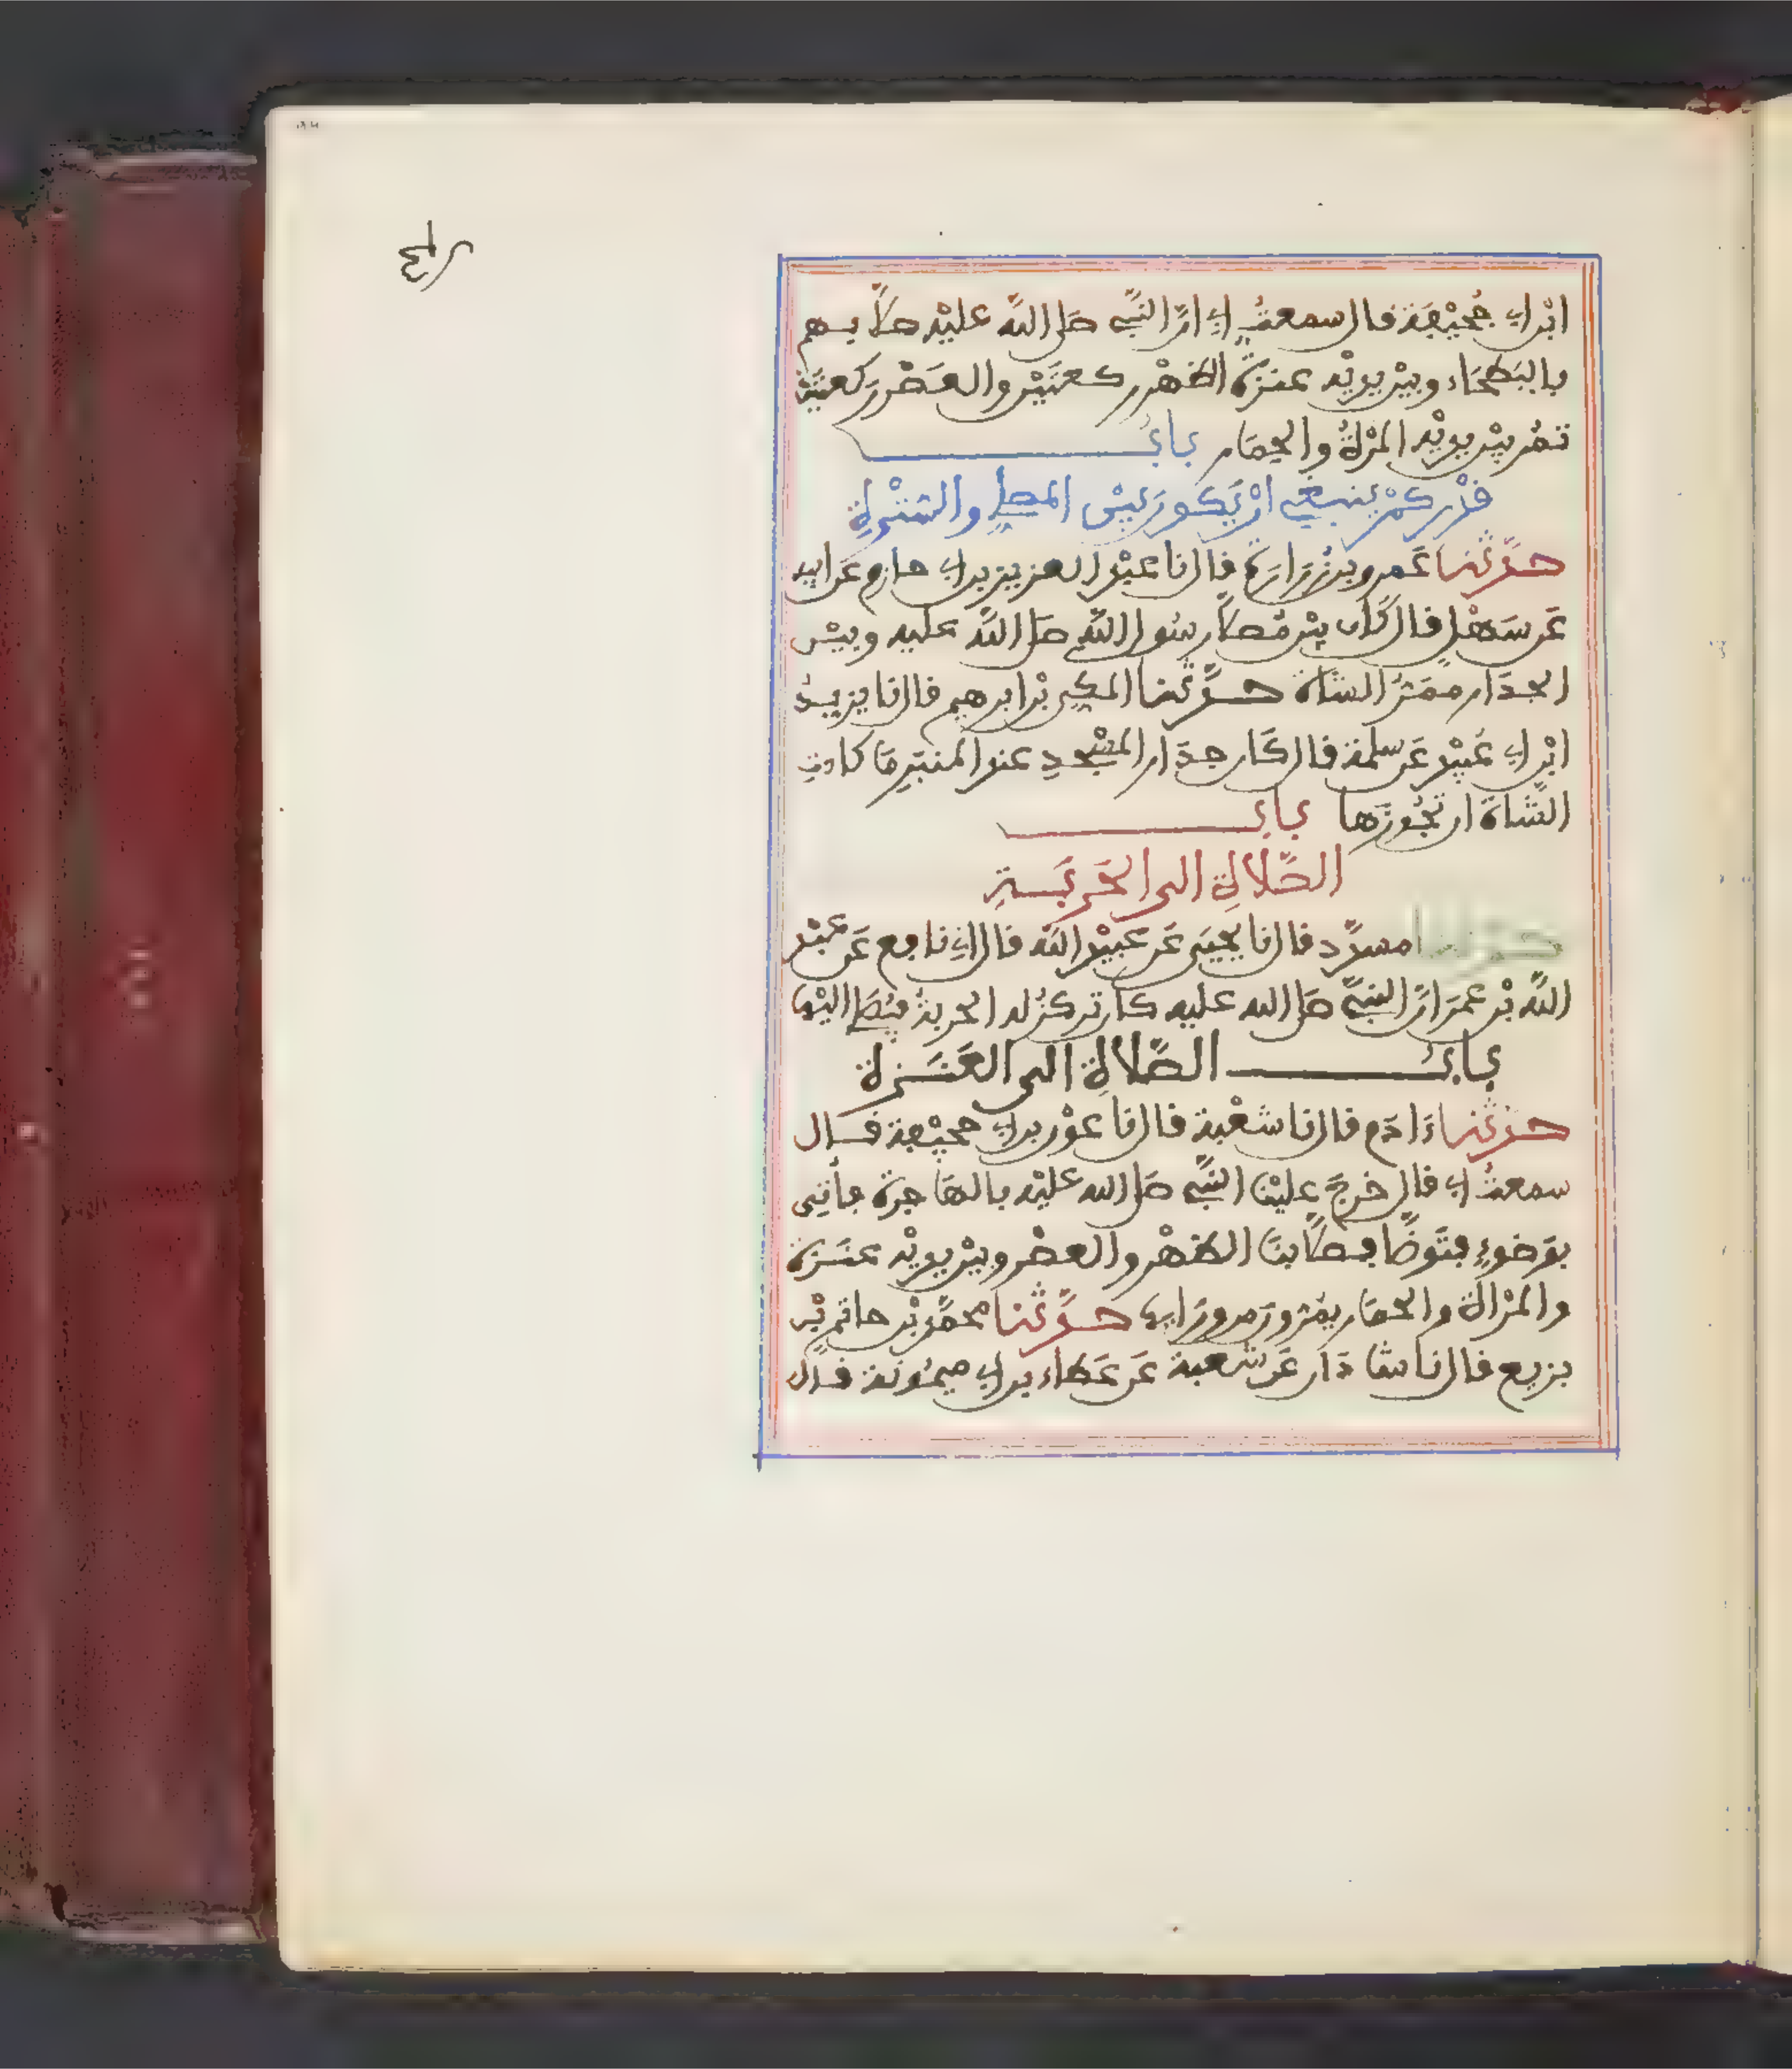 ابْن ابي جُحَيْفَة قال سمعتُ ابي انَّ النَّبيَّ صلى اللَّه عليْه صلَّا بهم
بالبَطْحَاء وبيْن يديْه عنزةٌ الظهْر ركعتَيْن والعَصْر ركعتيْن
تمُر بيْن يديْه المرْأةُ والحِمَار بابُ
قدْر كمْ ينبغي انْ يَكون بَيْن المصلي والستْرةِ
حدَّثنا عَمرو بنُ زرارَة قال نا عبْد العزيز بن ابي حازم عَن ابيه
عَن سَهْل قال كَان بيْن مُصلَّا رسُول اللَّه صلى اللَّه عليه وبيْن
الجدَار ممَرُّ الشاة حدَّثنا المكي بْن ابرهيم قال نا يزيدُ
ابْن ابي عُبيْد عَن سلمة قال كَان جدَار المسْجدِ عند المنبَرِ مَا كادتِ
الشَّاة ان تجُوزَها بابُ
الصَّلاةِ الى الحَرْبَةِ
حدثنا مسدَّد قال نا يحيَى عَن عبيْد اللَّه قال اني نافع عَن عبْد
اللَّه بْن عمَر انَّ النبيَّ صلى الله عليه كان تركزُ له الحربةُ فيُصَلي اليْها
بابُ الصَّلاةِ الى العَنَزة
حدثنا ءَادَم قال نا شعْبة قال نا عوْن بن ابي جحيْفة قال
سمعتُ ابي قال خرجَ عليْنا النبيُّ صلى الله عليْه بالهَاجرة فأتِى
بوَضوءٍ فتَوضَّا فصلَّا بنَا الظهْر والعصْر وبيْن يديْه عنَزة
والمرْأة والحمَار يمُرون من ورَايها حدَّثنا محمَّد بْن حاتم بْن
بزيع قال نا شاذان عَن شعبة عَن عَطاء بن ابي ميمُونة قال